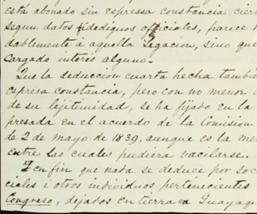 está abonado sin espressa constancia, cier
segun datos fidedignos oficiales, parece
dablemente a aquella Legacion, sino que
cargado interés alguno.
Que la deduccion cuarta hecha tambie
espresa constancia, pero con no menor
de su lejitimidad, se ha fijado en la
presada en el acuerdo de la Comision
de 2 de mayo de 1839, aunque es la me
entre las cuales pudiera vacilarse.
I en fin que nada se deduce por soc
ciales i otros individuos pertenecientes
Congreso, dejados en tierra en Guayaqu